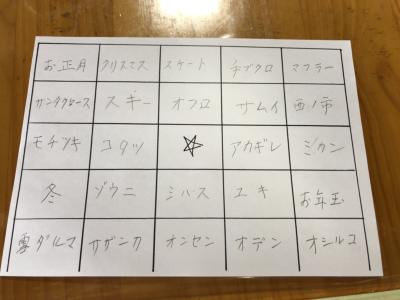 お正月 クリスマス スケート 手ブクロ マフラー
サンタクロース スキー オフロ サムイ 酉ノ市
モチツキ コタツ ☆ アカギレ ミカン
冬 ゾウニ シハス ユキ お年玉
雪ダルマ サザンカ オンセン オデン オシルコ